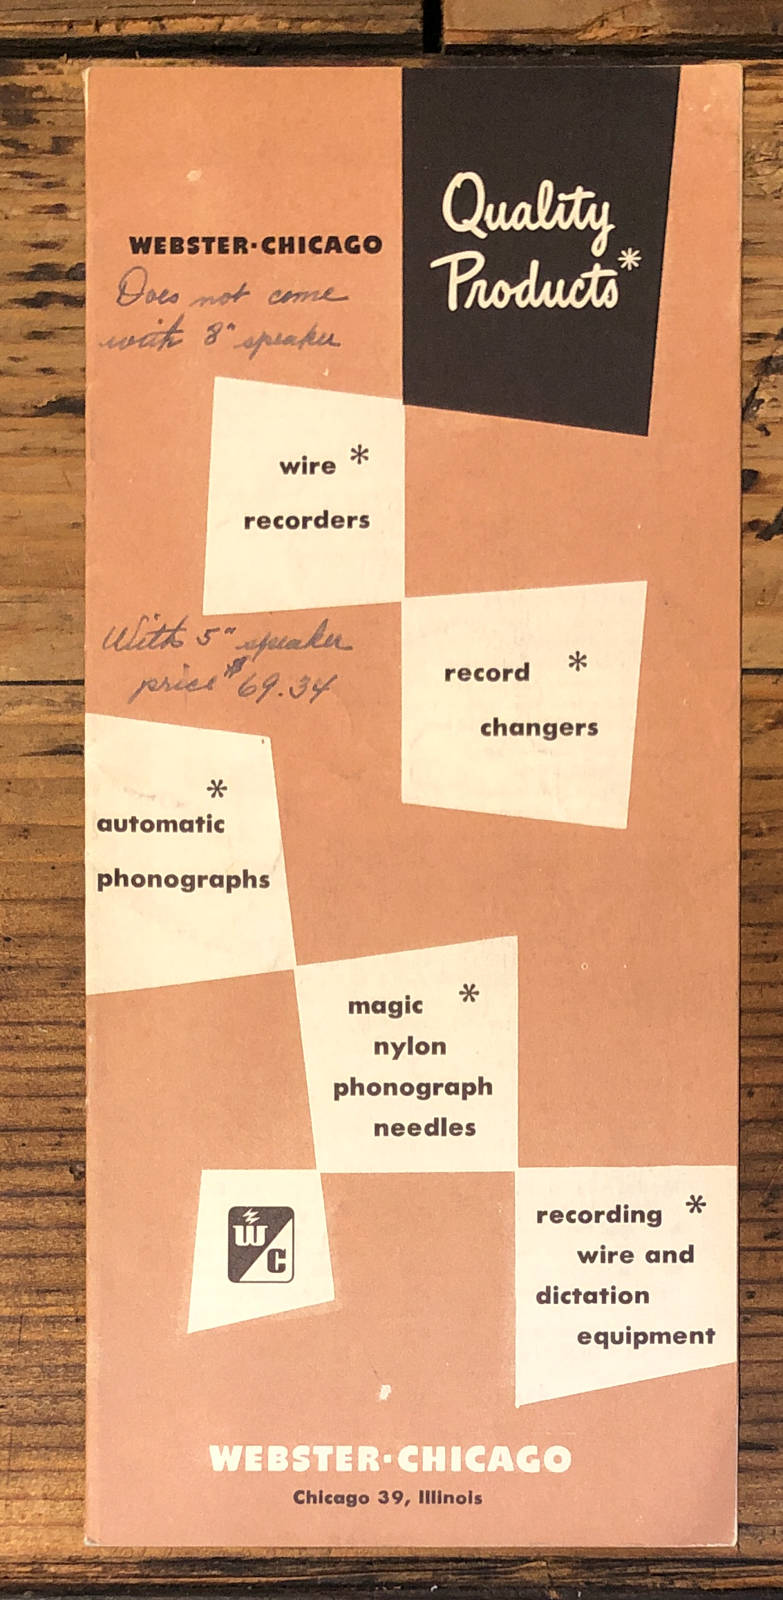 Quality
Products*
WEBSTER·CHICAGO
Does not come
with 8" speaker
wire *
recorders
With 5" speaker
price $69.34
record *
changers
*
automatic
phonographs
magic *
nylon
phonograph
needles
W
C
recording *
wire and
dictation
equipment
WEBSTER·CHICAGO
Chicago 39, Illinois